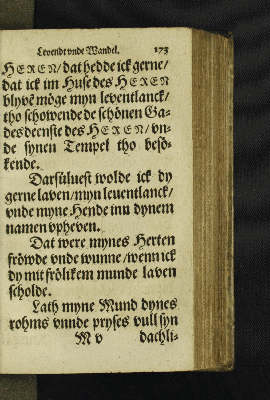 Levendt vnde Wandel. 173
HEREN/ dat hedde ick gerne/
dat ick im Huse des HEREN
blyvē möge myn leventlanck/
tho schowende de schönen Ga-
desdenste des HEREN/ vn-
de synen Tempel tho besö-
kende.
Darsüluest wolde ick dy
gerne laven/ myn leuentlanck/
vnde myne Hende inn dynem
namen vpheven.
Dat were mynes Herten
fröwde vnde wunne/ wenn ick
dy mit frölikem munde laven
scholde.
Lath myne Mund dynes
rohms vnnde pryses vull syn
M v dachli-